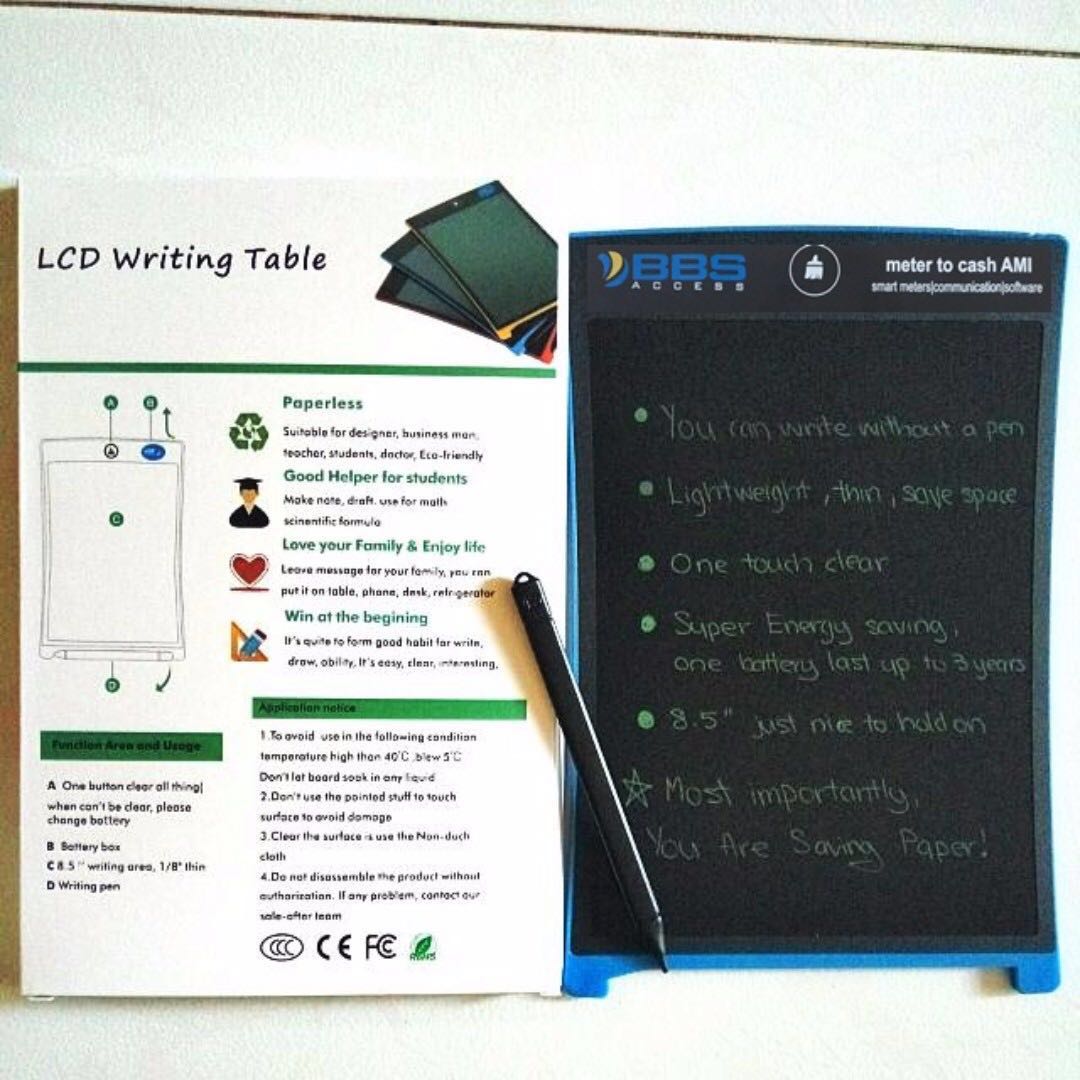 LCD Writing Table
A B
C
D
Paperless
Suitable for designer, business man,
teacher, students, doctor, Eco-friendly
Good Helper for students
Make note, draft. use for math
scinentific formula
Love your Family & Enjoy life
Leave message for your family, you can
put it on table, phone, desk, refrigerator
Win at the begining
It's quite to form good habit for write,
draw, ability, It's easy, clear, interesting,
Function Area and Usage
A One button clear all thing|
when can't be clear, please
change battery
B Battery box
C 8.5" writing area, 1/8" thin
D Writing pen
Application notice
1.To avoid use in the following condition
temperature high than 40℃ ,blew 5℃
Don't let board soak in any liquid
2.Don't use the pointed stuff to touch
surface to avoid damage
3.Clear the surface is use the Non-duch
cloth
4.Do not disassemble the product without
authorization. If any problem, contact our
sale-after team
CCC CE FC RoHS
BBS
ACCESS
meter to cash AMI
smart meters|communication|software
• You can write without a pen
• Lightweight, thin, save space
• One touch clear
• Super Energy saving,
one battery last up to 3 years
• 8.5" just nice to hold on
☆ Most importantly,
You Are Saving Paper!